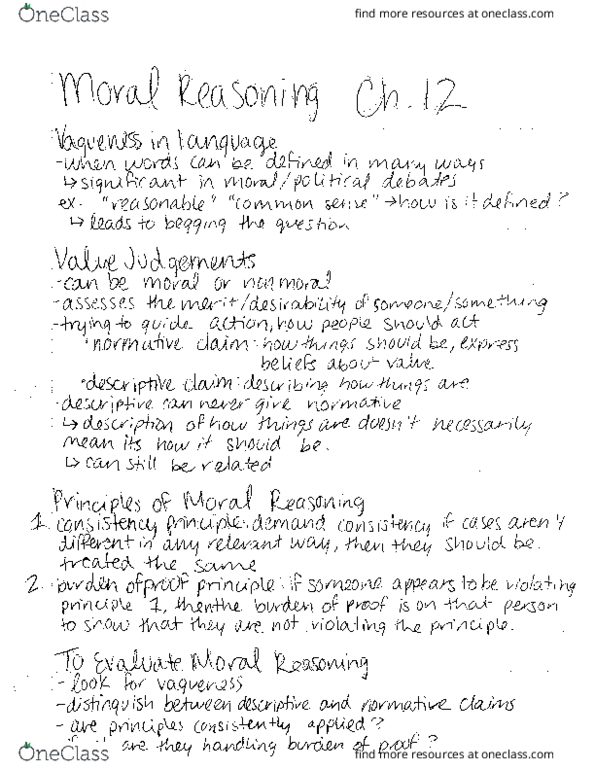 OneClass
find more resources at oneclass.com
Moral Reasoning Ch. 12
Vagueness in language
-when words can be defined in many ways
↳ significant in moral/political debates
ex. "reasonable" "common sense" → how is it defined?
↳ leads to begging the question
Value Judgements
-can be moral or nonmoral
-assesses the merit/desirability of someone/something
-trying to guide action, how people should act
•normative claim: how things should be, express
beliefs about value
•descriptive claim: describing how things are
-descriptive can never give normative
↳ description of how things are doesn't necessarily
mean its how it should be.
↳ can still be related
Principles of Moral Reasoning
1. consistency principle: demand consistency if cases aren't
different in any relevant way, then they should be
treated the same
2. burden of proof principle: if someone appears to be violating
principle 1, then the burden of proof is on that person
to show that they are not violating the principle.
To Evaluate Moral Reasoning
- look for vagueness
-distinguish between descriptive and normative claims
- are principles consistently applied?
are they handling burden of proof?
OneClass
find more resources at oneclass.com